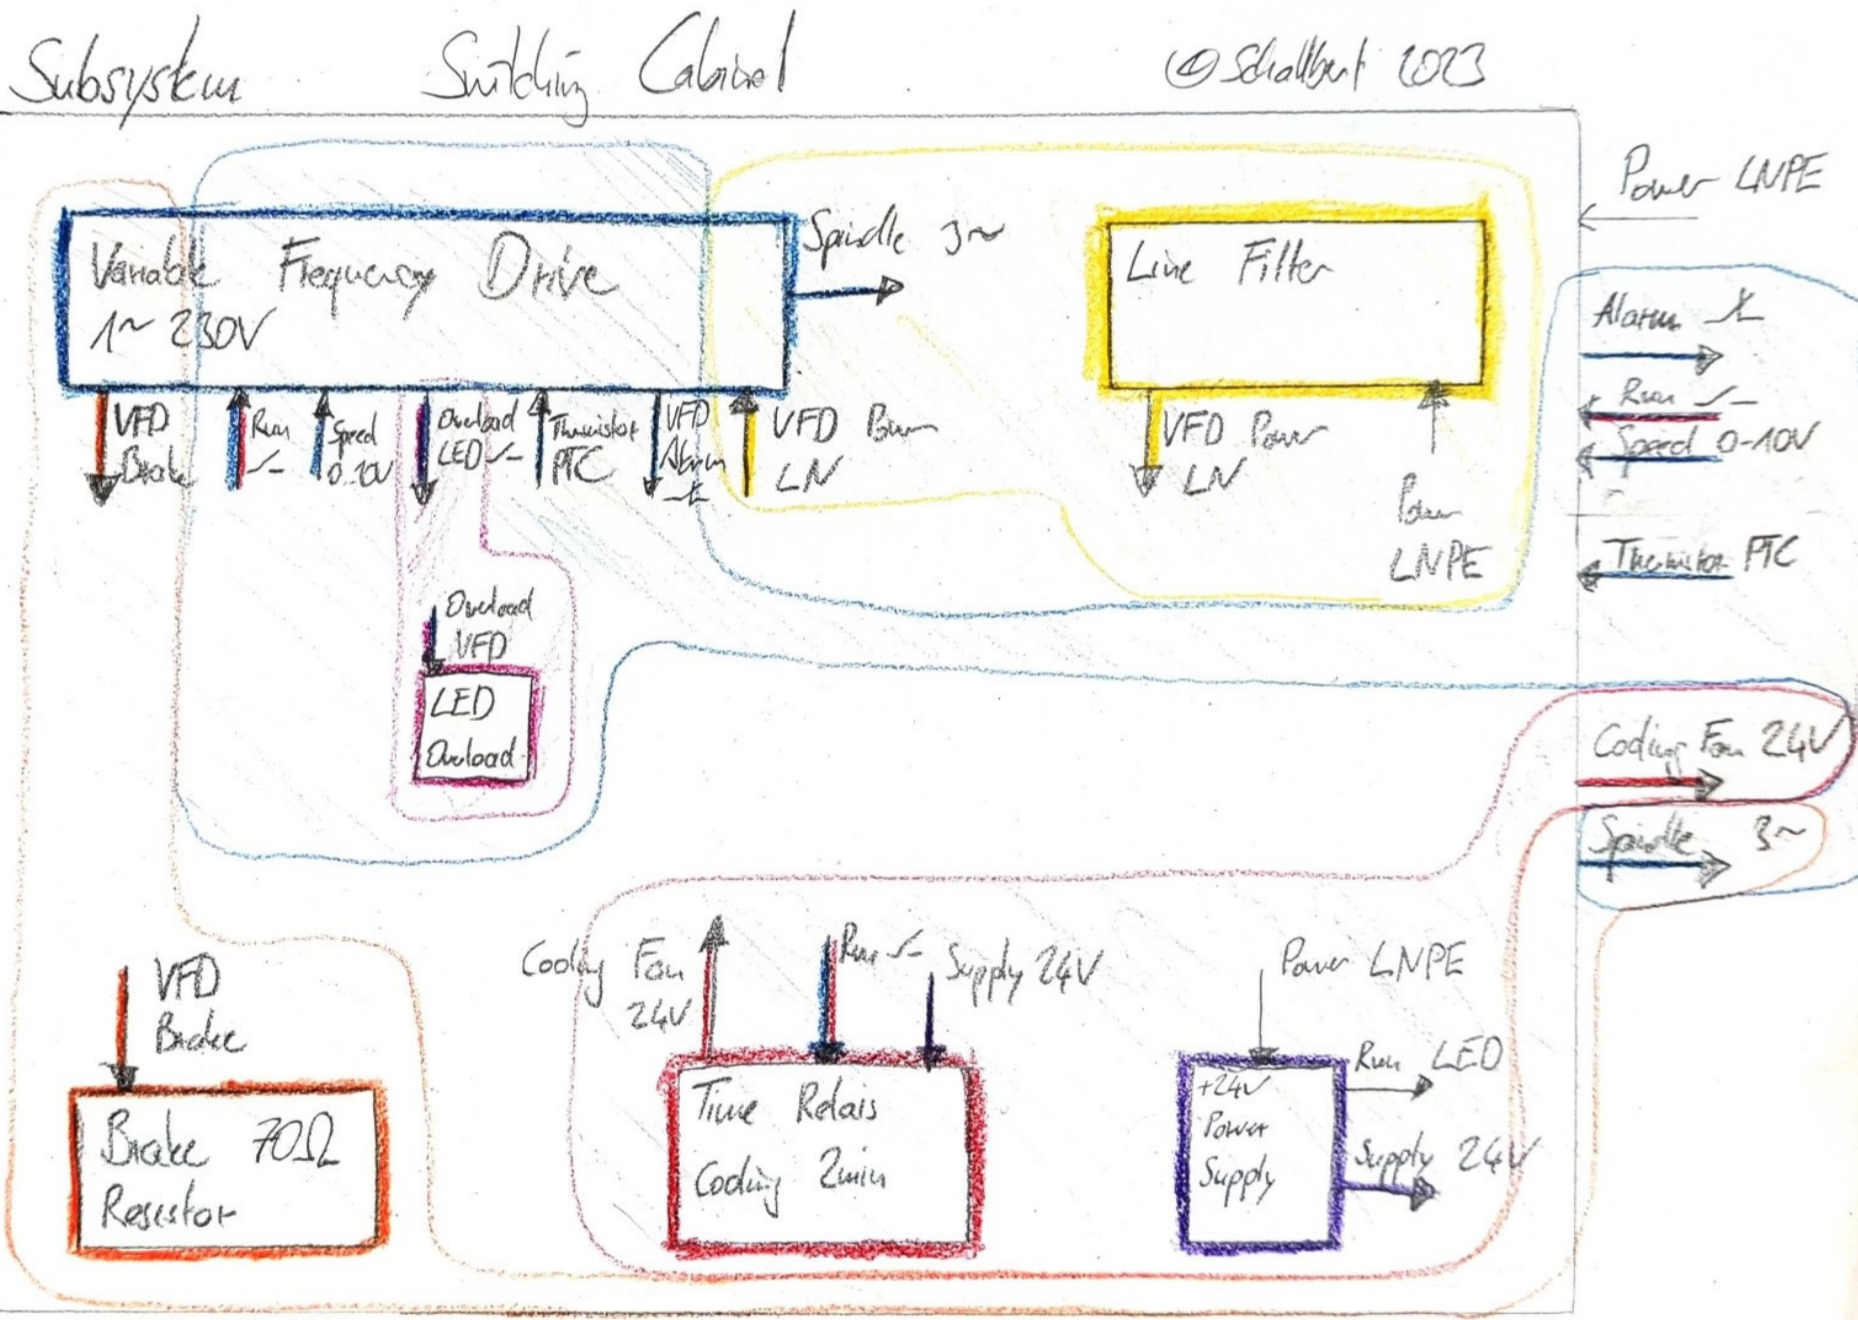 Subsystem Switching Cabinet © Schallbert 2023
Power LNPE
Variable Frequency Drive
1~ 230V
Spindle 3~
Line Filter
Alarm
Run
Speed 0-10V
Thermistor PTC
VFD
Brake
Run
Speed
0-10V
Overload
LED
Thermistor
PTC
VFD
Alarm
VFD Power
LN
VFD Power
LN
Power
LNPE
Overload
VFD
LED
Overload
Cooling Fan 24V
Spindle 3~
VFD
Brake
Brake 70Ω
Resistor
Cooling Fan
24V
Run
Supply 24V
Time Relais
Cooling 2min
Power LNPE
+24V
Power
Supply
Run LED
Supply 24V